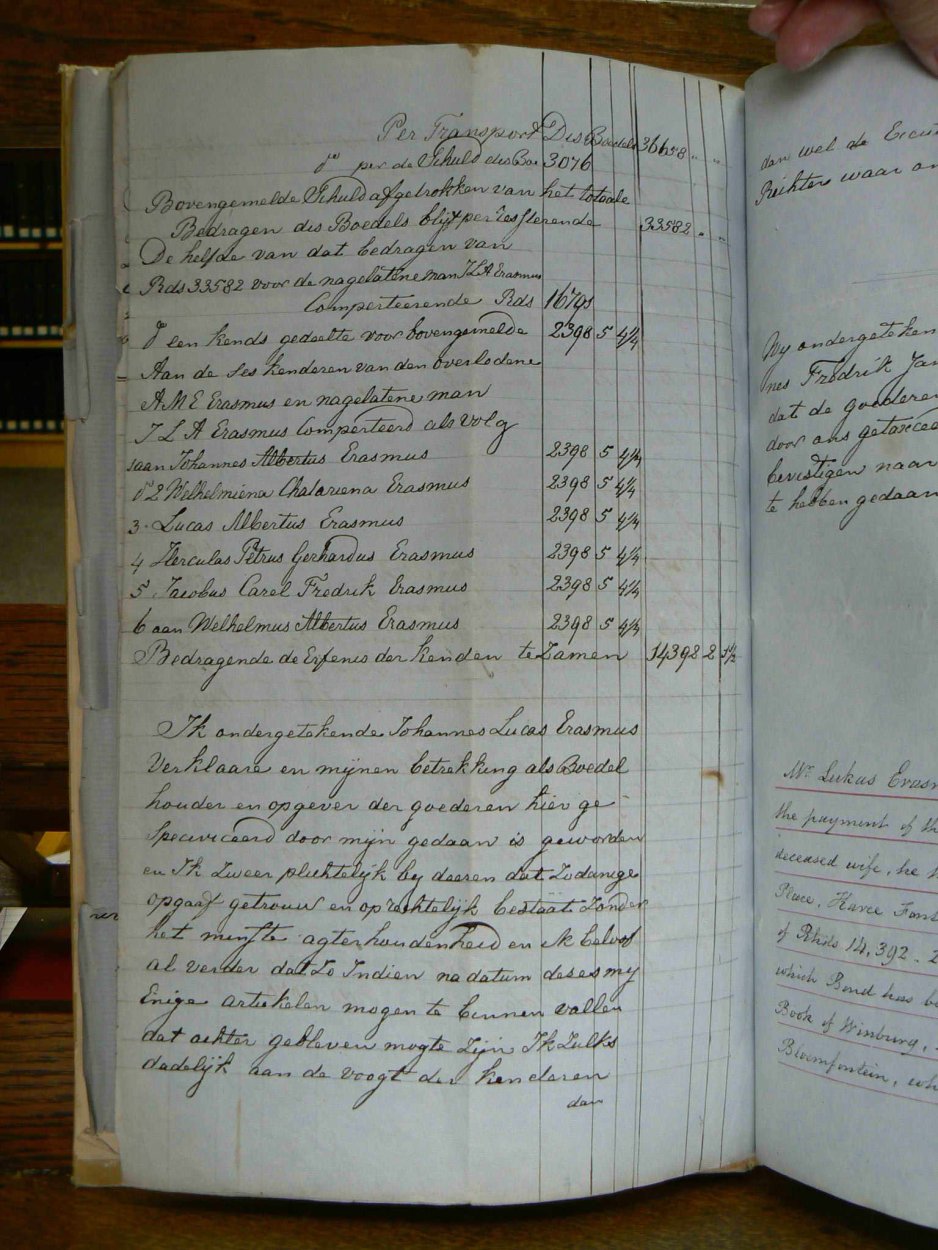 Per Transport Des Boedels 36658 " "
do per de Schuld des Boe 3076
Bovengemelde Schuld afgetrokken van het totaale
Bedragen des Boedels blijft per resisterende 33582 " "
De helfte van dat bedragen van
Rds 33582 voor de nagelatene man J L A Erasmus
Comperteerende Rds 16791
do een kends gedeelte voor bovengemelde 2398 5 4/4
Aan de ses kenderen van den overledene
A M E Erasmus en nagelatene man
J L A Erasmus Comperteerd als volg
1 aan Johannes Albertus Erasmus 2398 5 4/4
do 2 Welhelmiena Chatariena Erasmus 2398 5 4/4
3 Lucas Albertus Erasmus 2398 5 4/4
4 Herculas Petrus Gerhardus Erasmus 2398 5 4/4
5 Jacobus Carel Fredrik Erasmus 2398 5 4/4
6 aan Welhelmus Albertus Erasmus 2398 5 4/4
Bedragende de Erfenis der kenden te Zamen 14392 2 1/2
Ik ondergetekende Johannes Lucas Erasmus
Verklaare en mijnen betrekking als Boedel
houder en opgever der goederen hier ge
Speciviceerd door mijn gedaan is geworden
en Ik Zweer plechtelijk by deeren dat Zodanige
opgaaf getrouw en oprechtelijk bestaat Zonder
het minste agterhoudenheid en ik beloof
al verder dat Zo Indien na datum deses my
Enige artiekelen mogen te binnen vallen
dat achter gebleven mogte Zijn Ik Zulks
dadelijk aan de voogt der kenderen
dan
dan wel de
Richter waar
Wy ondergeteken
nes Fredrik Jan
dat de goederen
door ons getaxceer
bevestigen naar
te hebben gedaan
Mr. Lukas Erasm
the payment of th
deceased wife, he
Place,
of Rxds 14,392.
which Bond has be
Book of Winburg,
Bloemfontein, wh